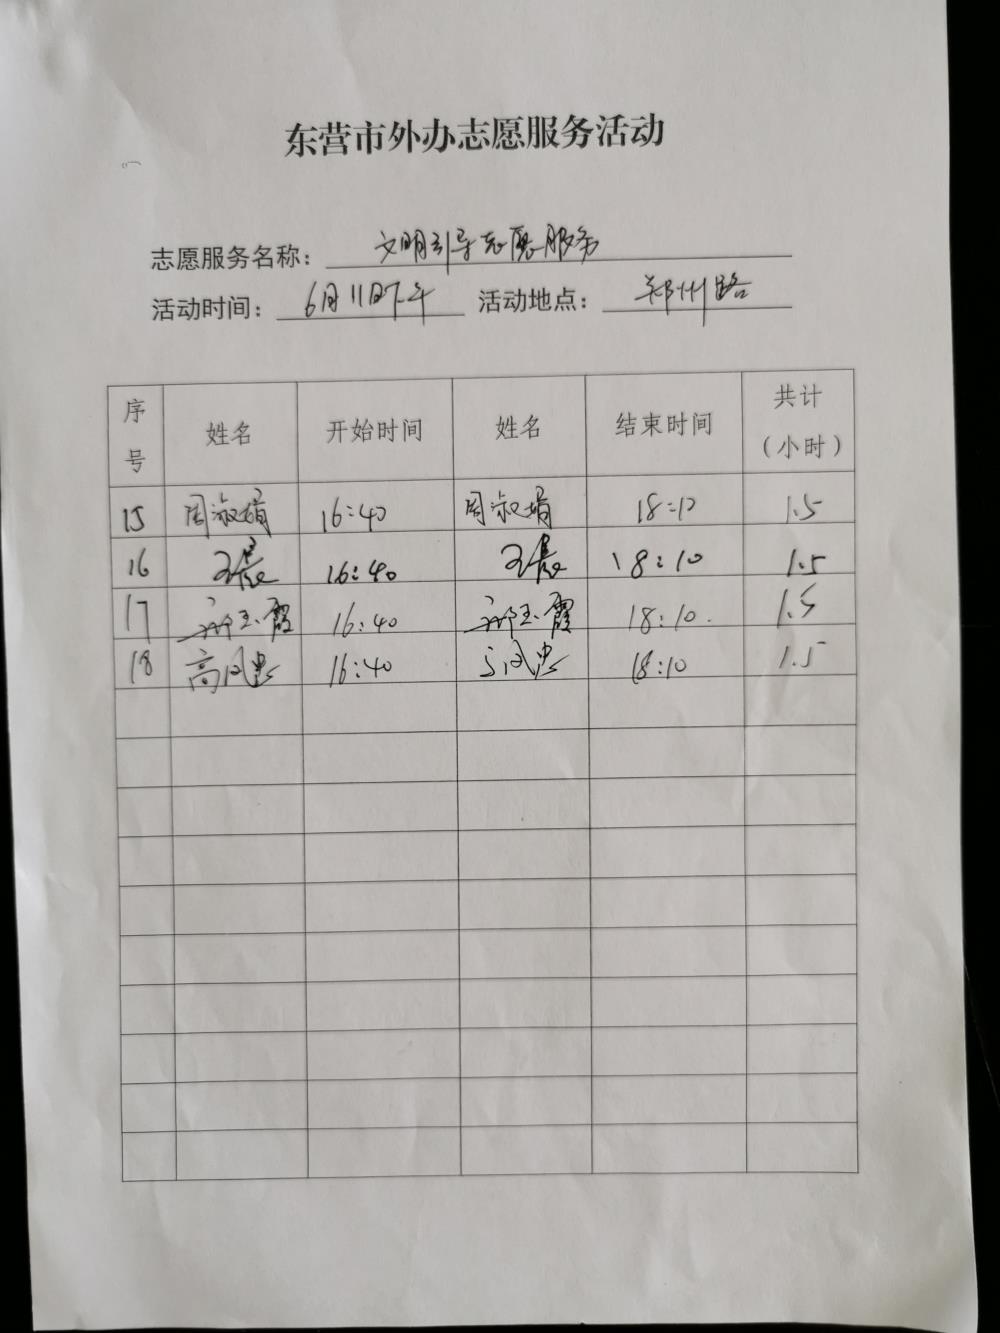 东营市外办志愿服务活动
志愿服务名称：文明引导志愿服务
活动时间：6月11日下午 活动地点：郑州路
序号 姓名 开始时间 姓名 结束时间 共计（小时）
15 周淑娟 16:40 周淑娟 18:10 1.5
16 王晨 16:40 王晨 18:10 1.5
17 玉霞 16:40 玉霞 18:10. 1.5
18 高凤忠 16:40 高凤忠 18:10 1.5